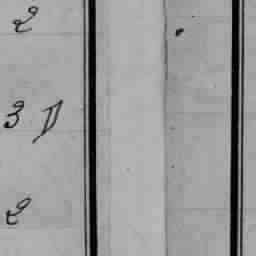 2
3 D
2